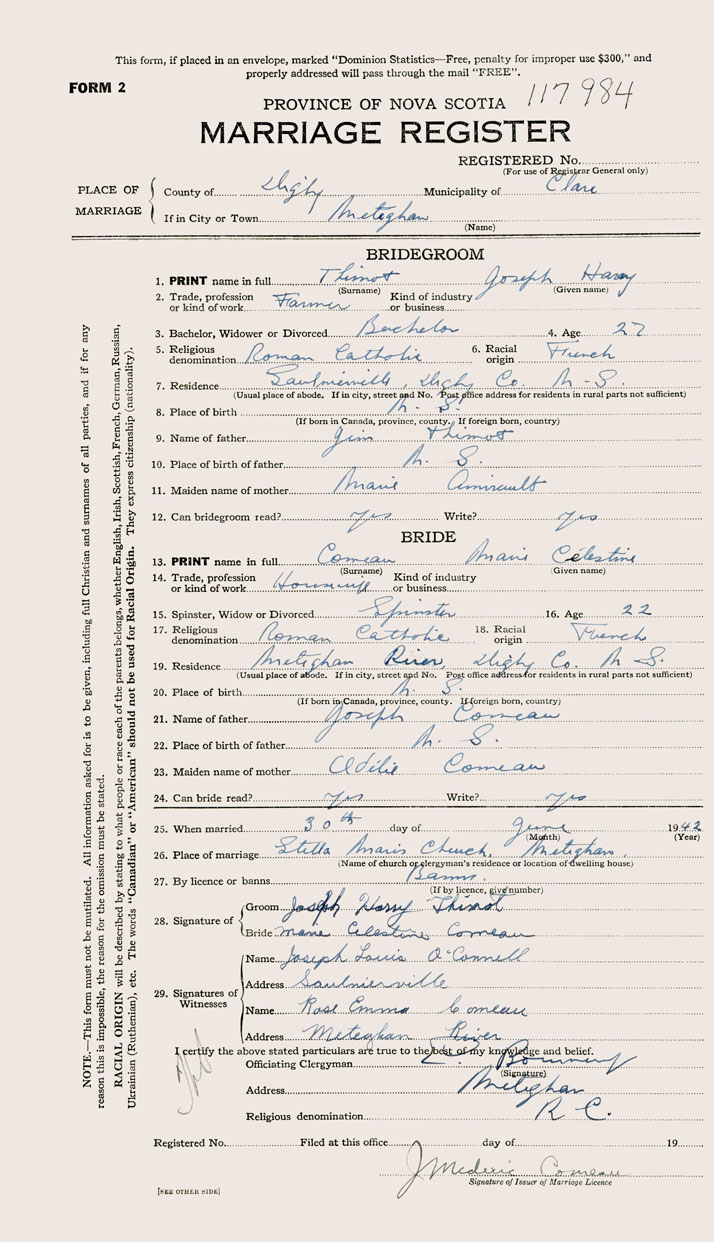 This form, if placed in an envelope, marked "Dominion Statistics—Free, penalty for improper use $300," and
properly addressed will pass through the mail "FREE".
FORM 2
117984
PROVINCE OF NOVA SCOTIA
MARRIAGE REGISTER
REGISTERED No.
(For use of Registrar General only)
PLACE OF MARRIAGE
County of Digby Municipality of Clare
If in City or Town Meteghan
(Name)
BRIDEGROOM
1. PRINT name in full Thimot Joseph Harry
(Surname) (Given name)
2. Trade, profession or kind of work Farmer Kind of industry or business
3. Bachelor, Widower or Divorced Bachelor 4. Age 27
5. Religious denomination Roman Catholic 6. Racial origin French
7. Residence Saulnierville, Digby Co. N-S.
(Usual place of abode. If in city, street and No. Post office address for residents in rural parts not sufficient)
8. Place of birth N. S.
(If born in Canada, province, county. If foreign born, country)
9. Name of father Jim Thimot
10. Place of birth of father N. S.
11. Maiden name of mother Marie Amirault
12. Can bridegroom read? yes Write? yes
BRIDE
13. PRINT name in full Comeau Marie Célestine
(Surname) (Given name)
14. Trade, profession or kind of work Housewife Kind of industry or business
15. Spinster, Widow or Divorced Spinster 16. Age 22
17. Religious denomination Roman Catholic 18. Racial origin French
19. Residence Meteghan River, Digby Co. N S.
(Usual place of abode. If in city, street and No. Post office address for residents in rural parts not sufficient)
20. Place of birth N. S.
(If born in Canada, province, county. If foreign born, country)
21. Name of father Joseph Comeau
22. Place of birth of father N. S.
23. Maiden name of mother Odélie Comeau
24. Can bride read? yes Write? yes
25. When married 30th day of June 1942
(Month) (Year)
26. Place of marriage Stella Maris Church, Meteghan.
(Name of church or clergyman's residence or location of dwelling house)
27. By licence or banns Banns.
(If by licence, give number)
28. Signature of
Groom Joseph Harry Thimot
Bride Marie Celestine Comeau
29. Signatures of Witnesses
Name Joseph Louis O'Connell
Address Saulnierville
Name Rose Emma Comeau
Address Meteghan River
I certify the above stated particulars are true to the best of my knowledge and belief.
Officiating Clergyman
(Signature)
Address Meteghan
Religious denomination R C.
Registered No. Filed at this office day of 19
J Mederic Comeau
Signature of Issuer of Marriage Licence
[SEE OTHER SIDE]
NOTE.—This form must not be mutilated. All information asked for is to be given, including full Christian and surnames of all parties, and if for any
reason this is impossible, the reason for the omission must be stated.
RACIAL ORIGIN will be described by stating to what people or race each of the parents belongs, whether English, Irish, Scottish, French, German, Russian,
Ukrainian (Ruthenian), etc. The words "Canadian" or "American" should not be used for Racial Origin. They express citizenship (nationality).